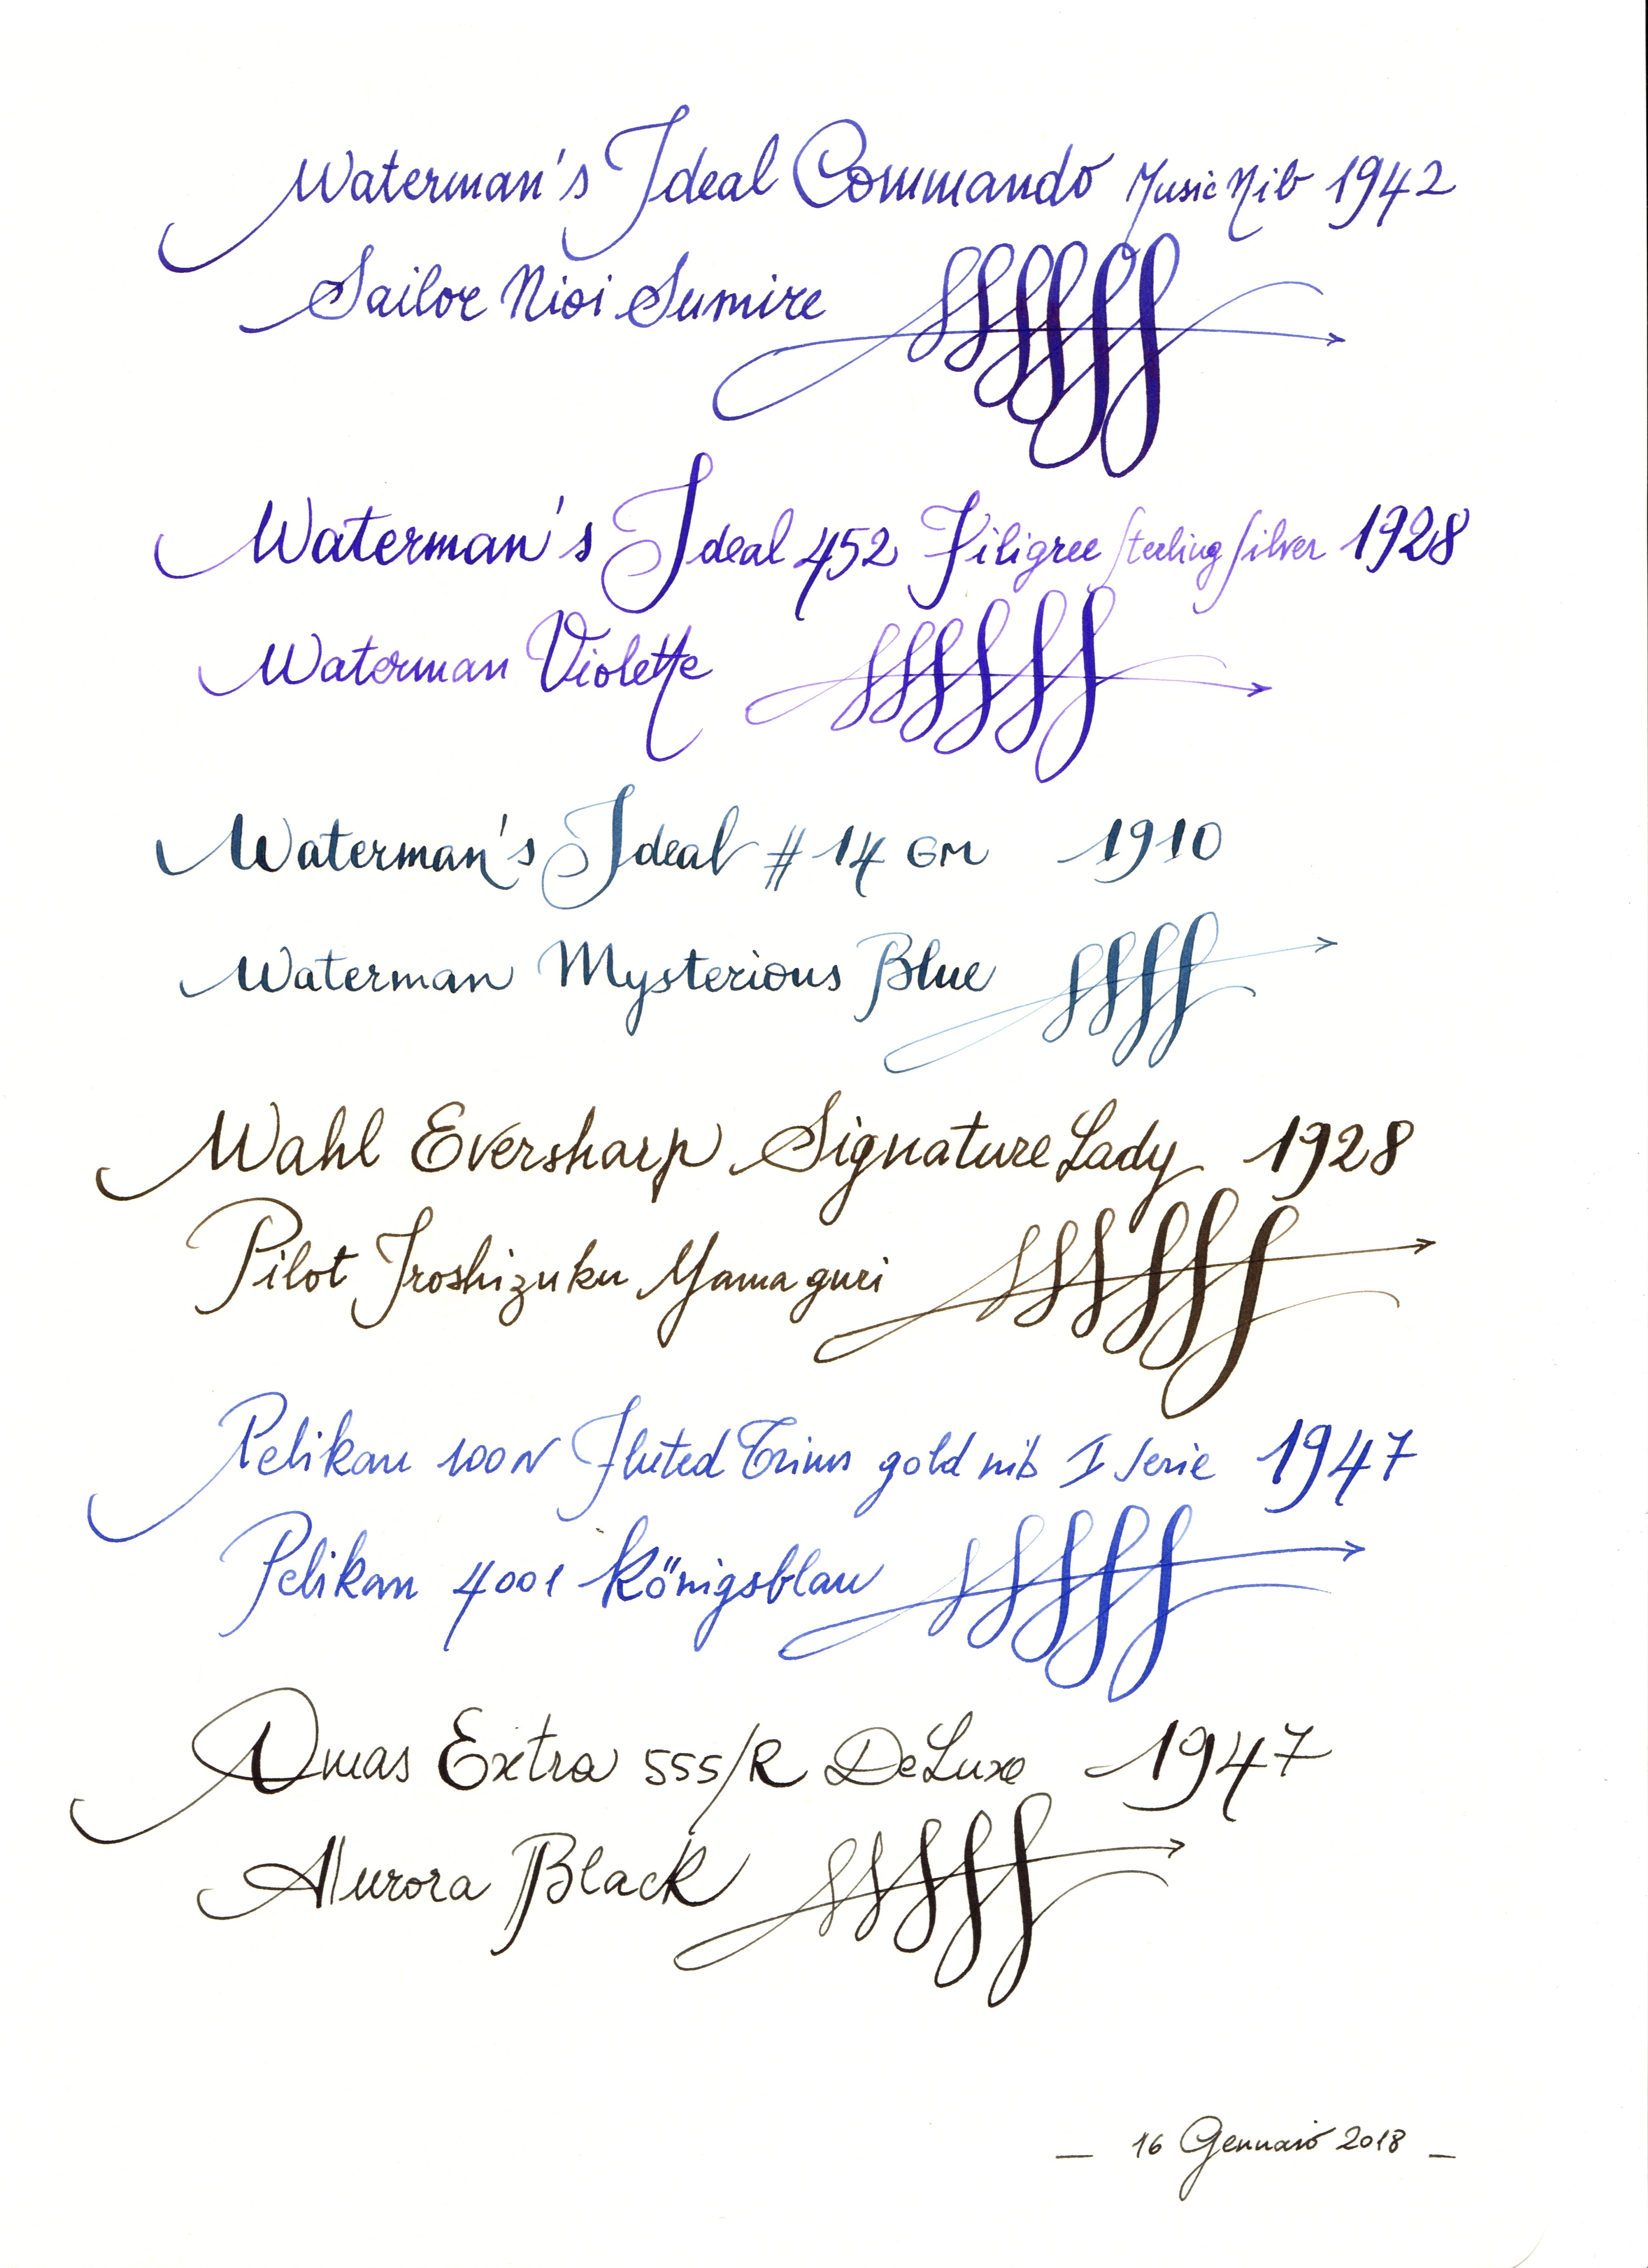 Waterman's Ideal Commando Music Nib 1942
Sailor Nioi Sumire
Waterman's Ideal 452 Filigree Sterling Silver 1928
Waterman Violette
Waterman's Ideal # 14 GM 1910
Waterman Mysterious Blue
Wahl Eversharp Signature Lady 1928
Pilot Iroshizuku Yamaguri
Pelikan 100N Fluted Trims gold nib I Serie 1947
Pelikan 4001 Königsblau
Omas Extra 555/R DeLuxe 1947
Aurora Black
— 16 Gennaio 2018 —